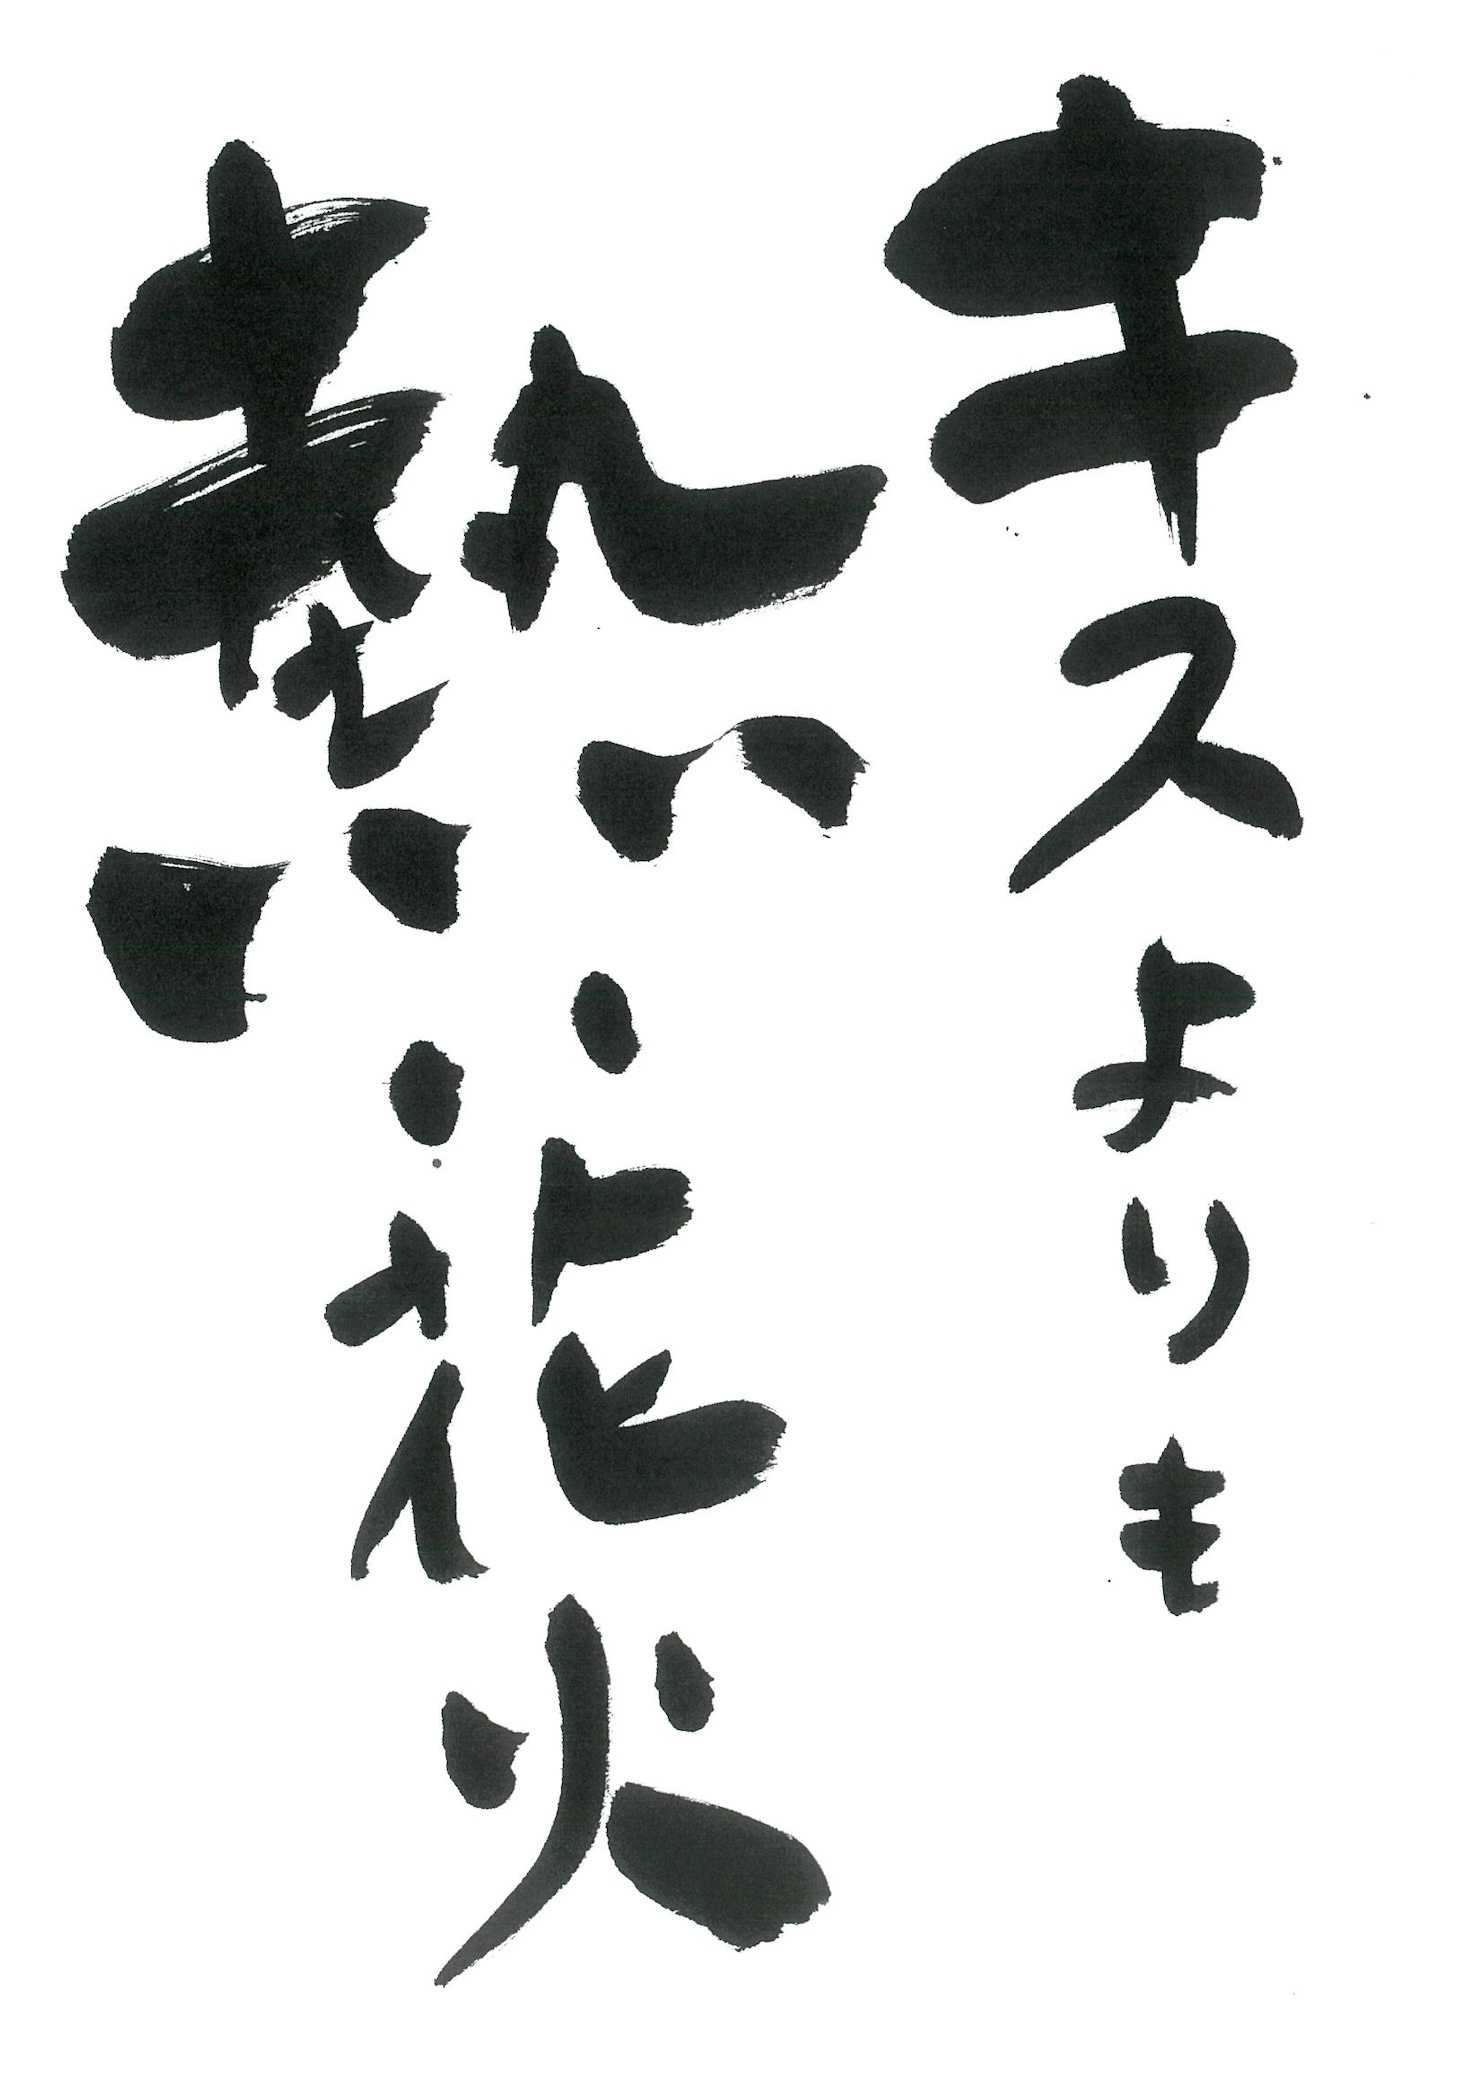 キスよりも
熱い花火